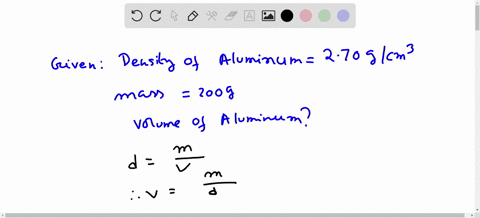 Given: Density of Aluminum = 2.70 g/cm³
mass = 200g
volume of Aluminum?
d = m/v
∴ v = m/d